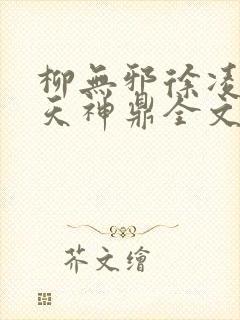 柳無邪徐凌
天神鼎全文
芥文繪